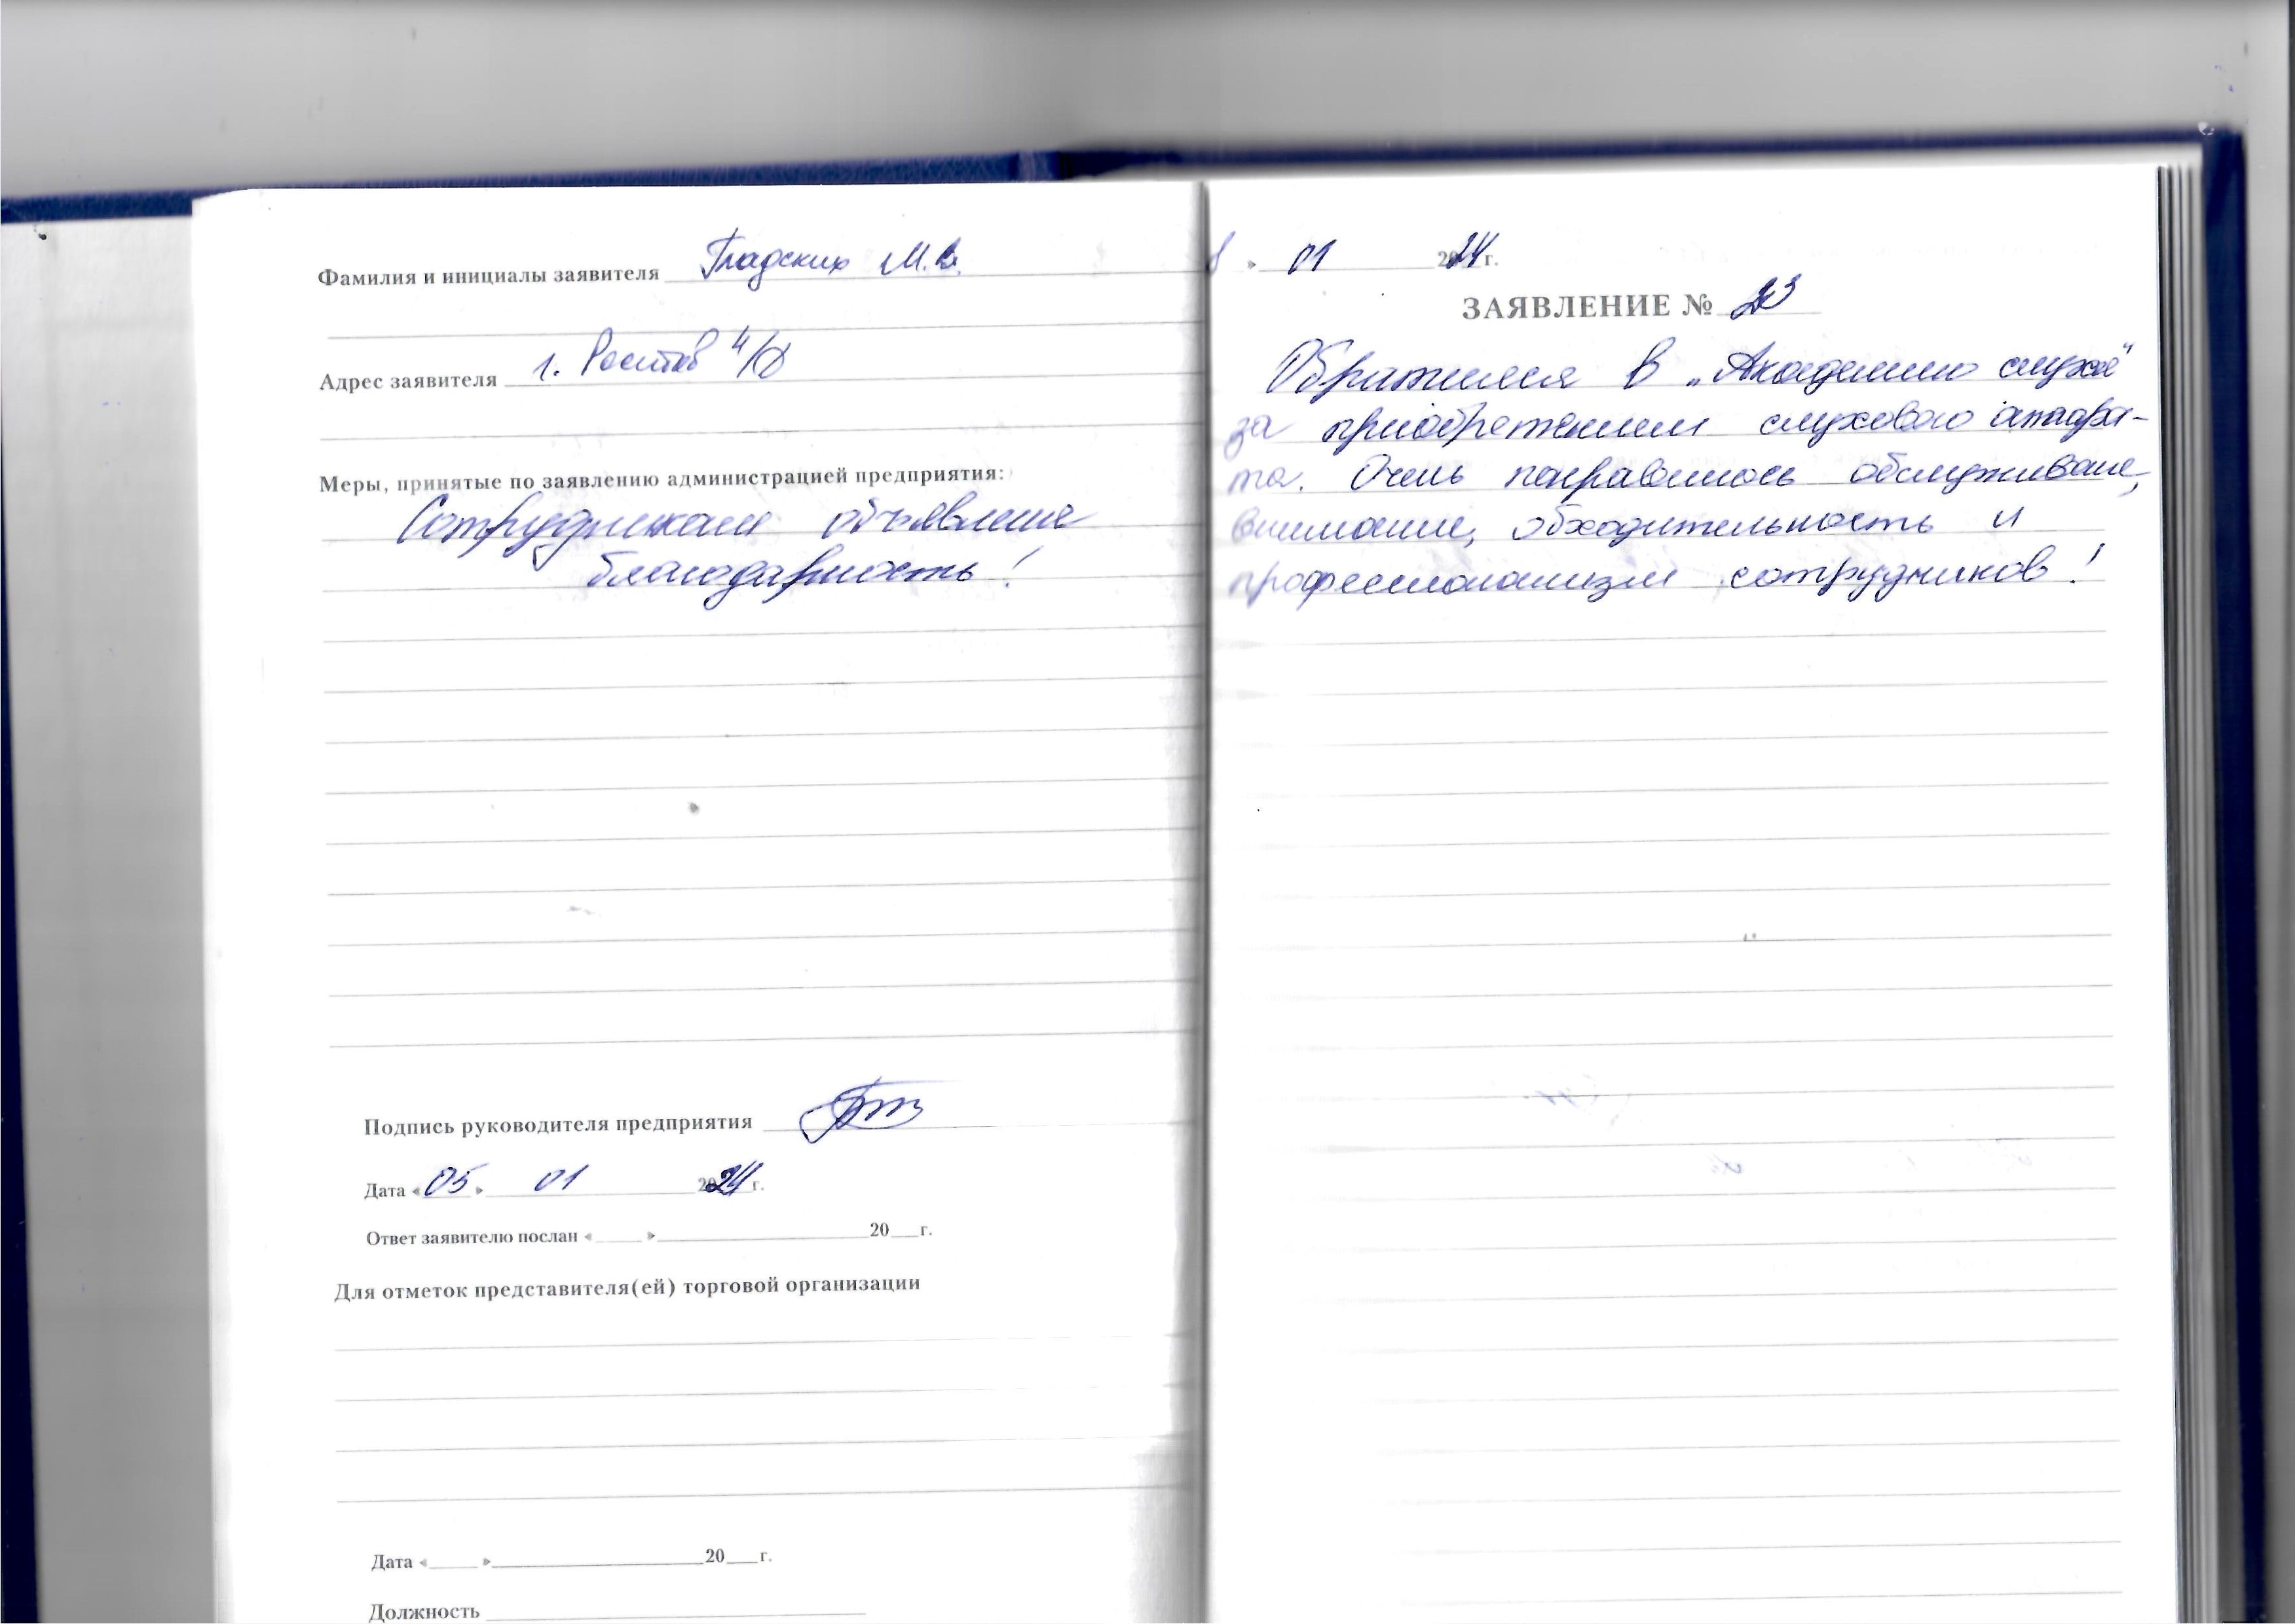 Фамилия и инициалы заявителя Гладских М.В.
Адрес заявителя г. Ростов н/Д
Меры, принятые по заявлению администрацией предприятия:
Сотрудникам объявлена
благодарность!
Подпись руководителя предприятия
Дата «05» 01 2024 г.
Ответ заявителю послан « » 20 г.
Для отметок представителя(ей) торговой организации
Дата « » 20 г.
Должность
» 01 2024 г.
ЗАЯВЛЕНИЕ № 23
Обратился в „Академию слуха"
за приобретением слухового аппара-
та. Очень понравилось обслуживание,
внимание, обходительность и
профессионализм сотрудников!